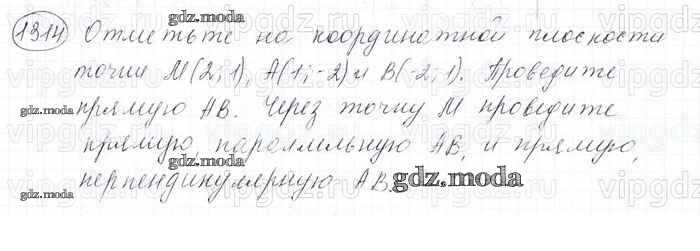 1314 Отметьте на координатной плоскости
точки M(2; 1), A(1; -2) и B(-2; 1). Проведите
прямую AB. Через точку M проведите
прямую, параллельную AB, и прямую,
перпендикулярную AB.
gdz.moda
gdz.moda
gdz.moda
gdz.moda
gdz.moda
gdz.moda
gdz.moda